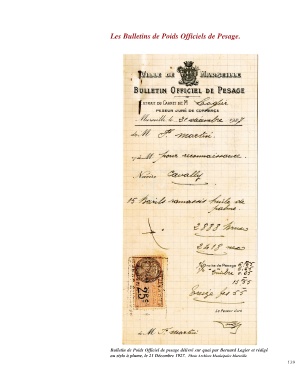 Les Bulletins de Poids Officiels de Pesage.
VILLE DE MARSEILLE
BULLETIN OFFICIEL DE PESAGE
EXTRAIT DU CARNET DE Mr Legier
PESEUR JURÉ DE COMMERCE
Marseille le 21 décembre 1927
de M. St Martin
à M. pour reconnaissance
Navire Cavally
15 huile de
palme
2888 brut
2418
Droits de Pesage
Timbre
25c
Le Peseur Juré
à M. St Martin
Bulletin de Poids Officiel de pesage délivré sur quai par Bernard Legier et rédigé
au stylo à plume, le 21 Décembre 1927. Photo Archives Municipales Marseille